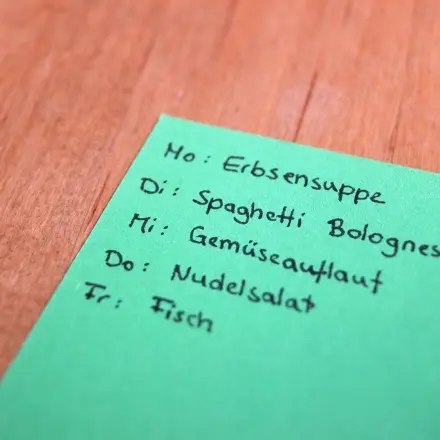 Mo: Erbsensuppe
Di: Spaghetti Bolognes
Mi: Gemüseauflauf
Do: Nudelsalat
Fr: Fisch